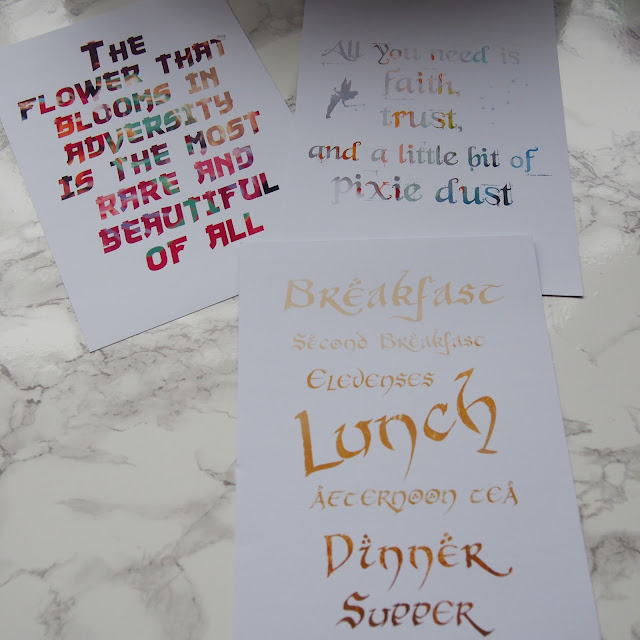 The
flower that
blooms in
adversity
is the most
rare and
beautiful
of all
All you need is
faith,
trust,
and a little bit of
pixie dust
Brëakfast
Sëcond Brëakfast
Elevenses
Lunch
Åfternoon teå
Dïnnër
Supper